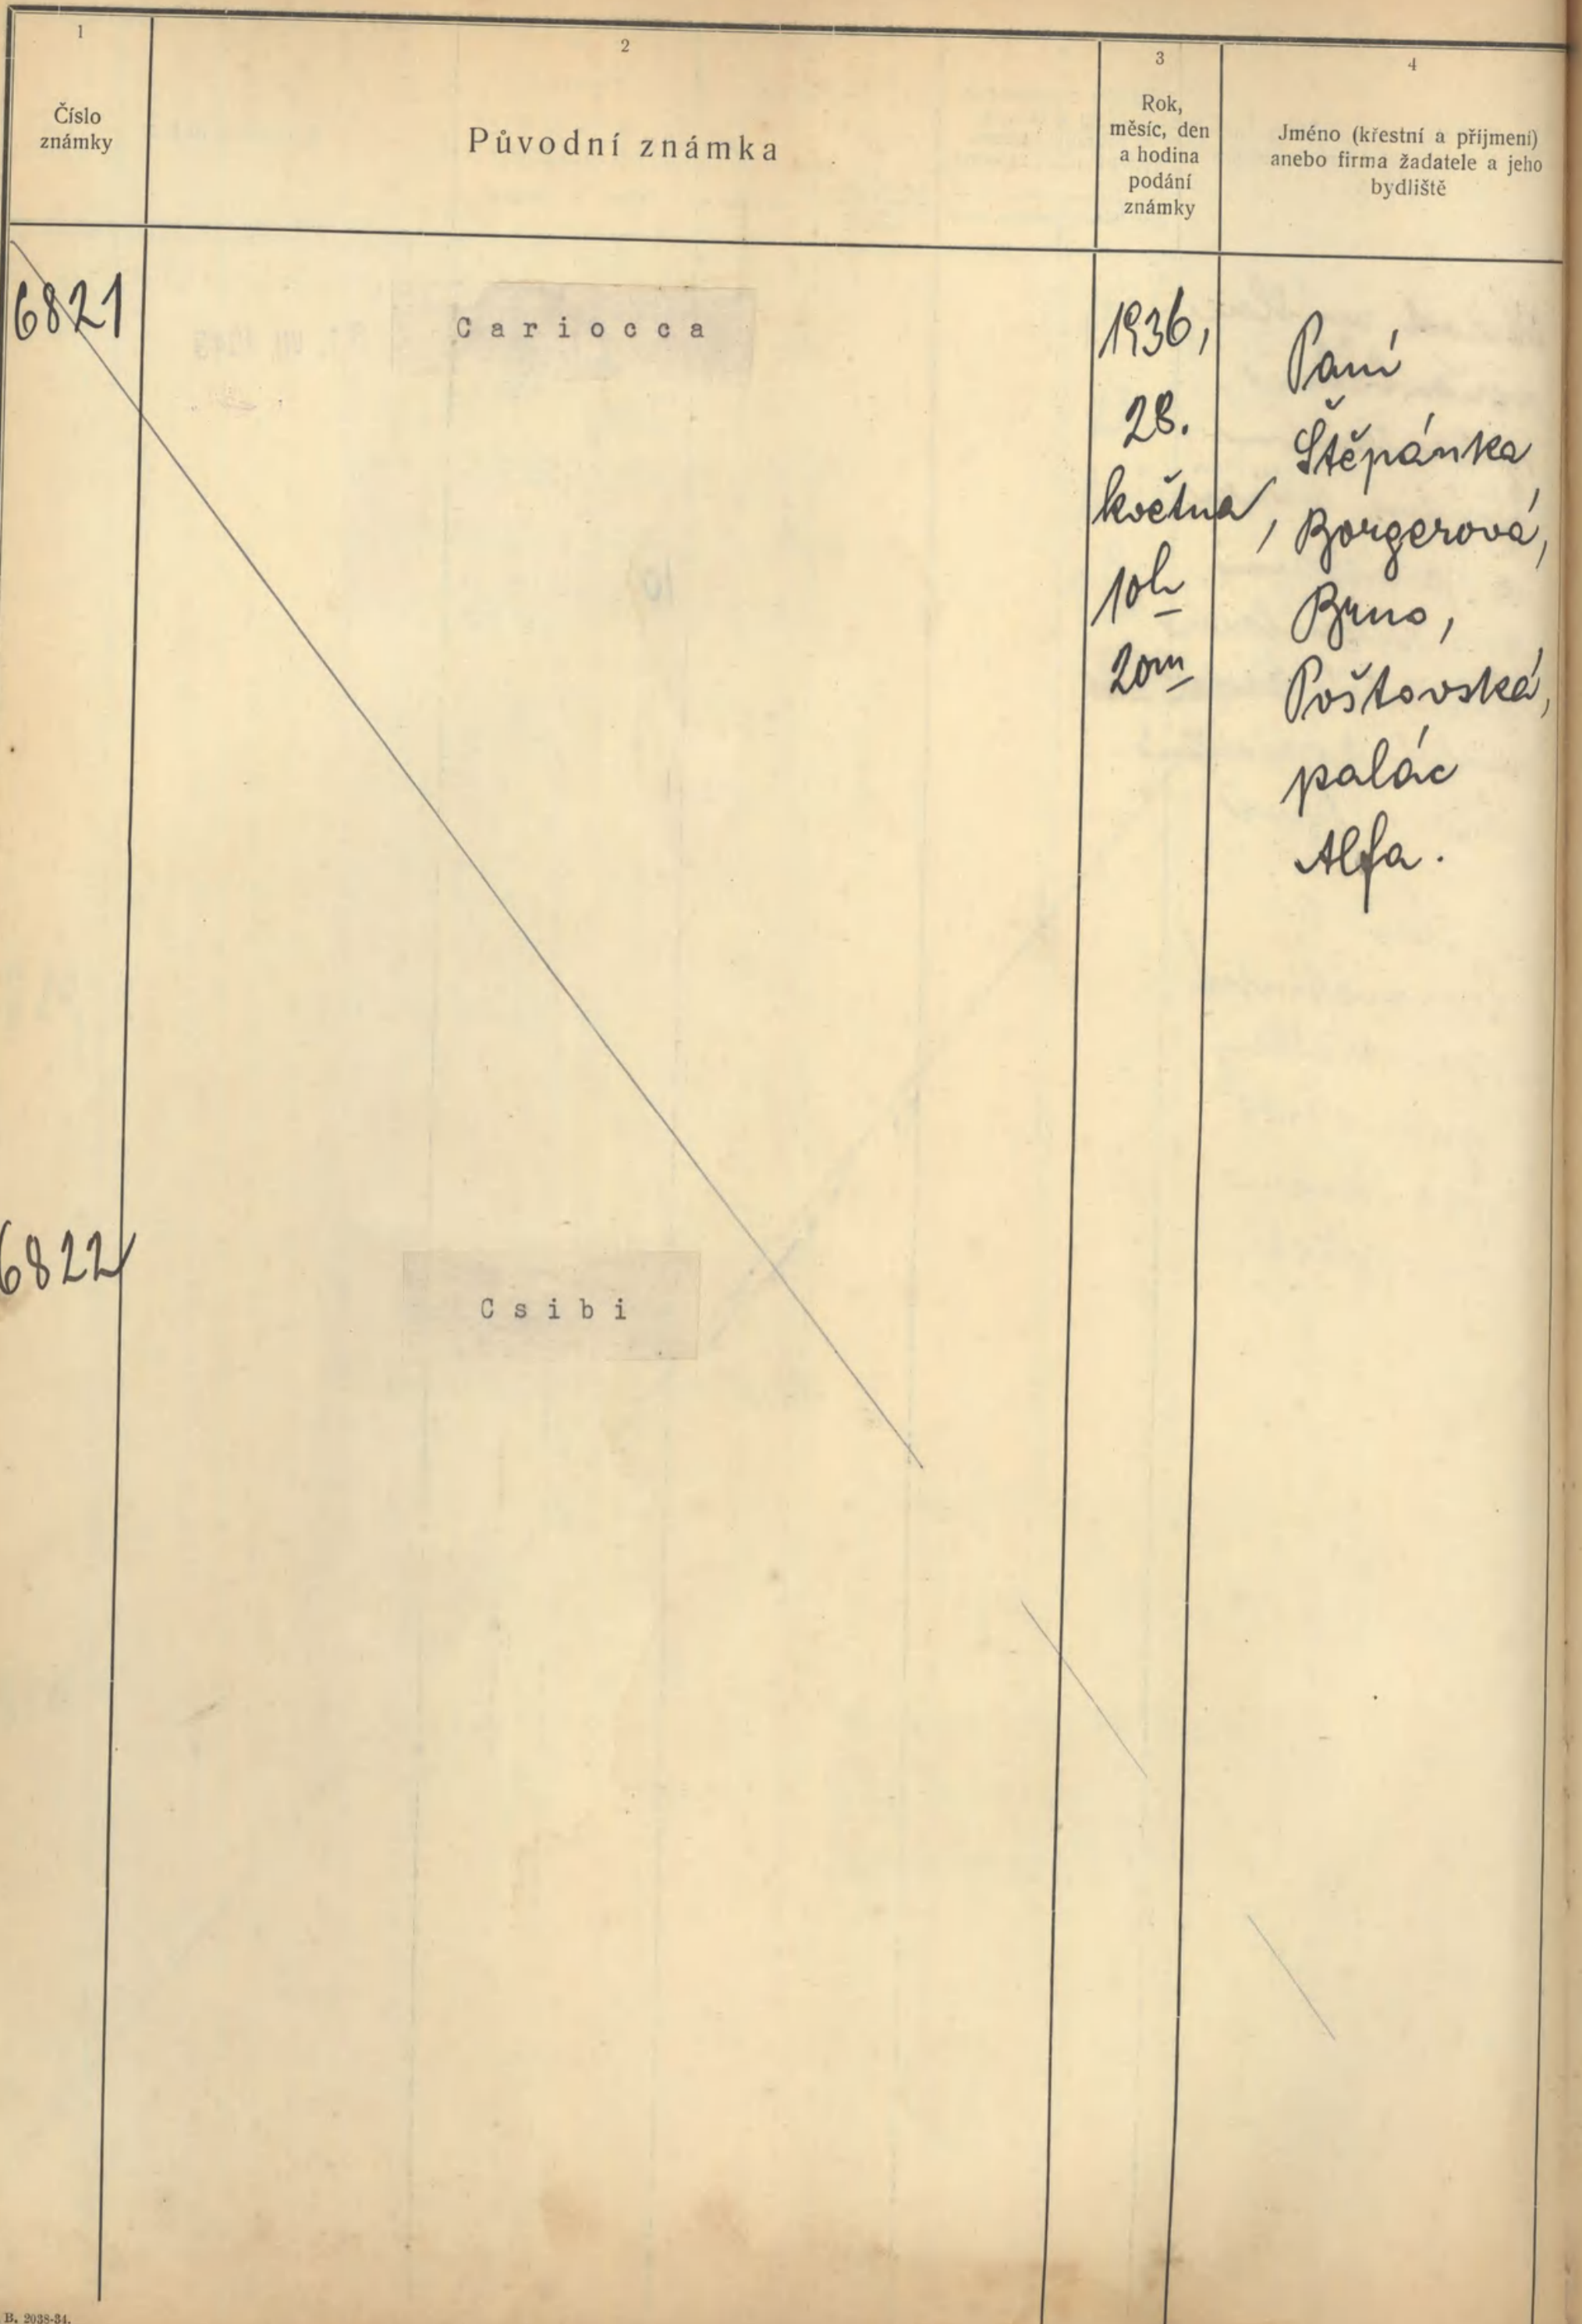 1
Číslo
známky
2
Původní známka
3
Rok,
měsíc, den
a hodina
podání
známky
4
Jméno (křestní a přijmení)
anebo firma žadatele a jeho
bydliště
6821
Cariocca
1936,
28.
května,
10h
20m
Paní
Štěpánka
Borgerová,
Brno,
Poštovská,
palác
Alfa.
6822
Csibi
B. 2038-34.